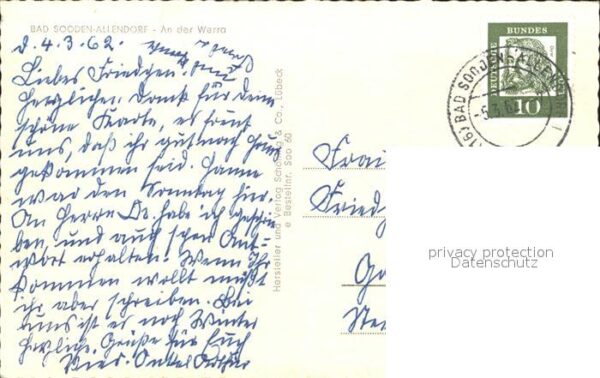 BAD SOODEN-ALLENDORF - An der Werra
d. 4.3.62.
Liebes Friedchen!
Herzlichen Dank für deine
schöne Karte, es freut
uns, daß ihr gut nach Hause
gekommen seid. Hanne
war den Sonntag hier.
An Herrn Dr. habe ich geschrie-
ben, und auch schon Ant-
wort erhalten. Wenn Ihr
kommen wollt müßt
ihr aber schreiben. Bei
uns ist es noch Winter
Herzliche Grüße für Euch
Onkel
Hersteller und Verlag Schöning & Co., Lübeck
Bestellnr. Soo 60
DEUTSCHE BUNDES
10
(16) BAD SOODEN-ALLEN
-5.3.6
Frau
Fried
Go
privacy protection
Datenschutz